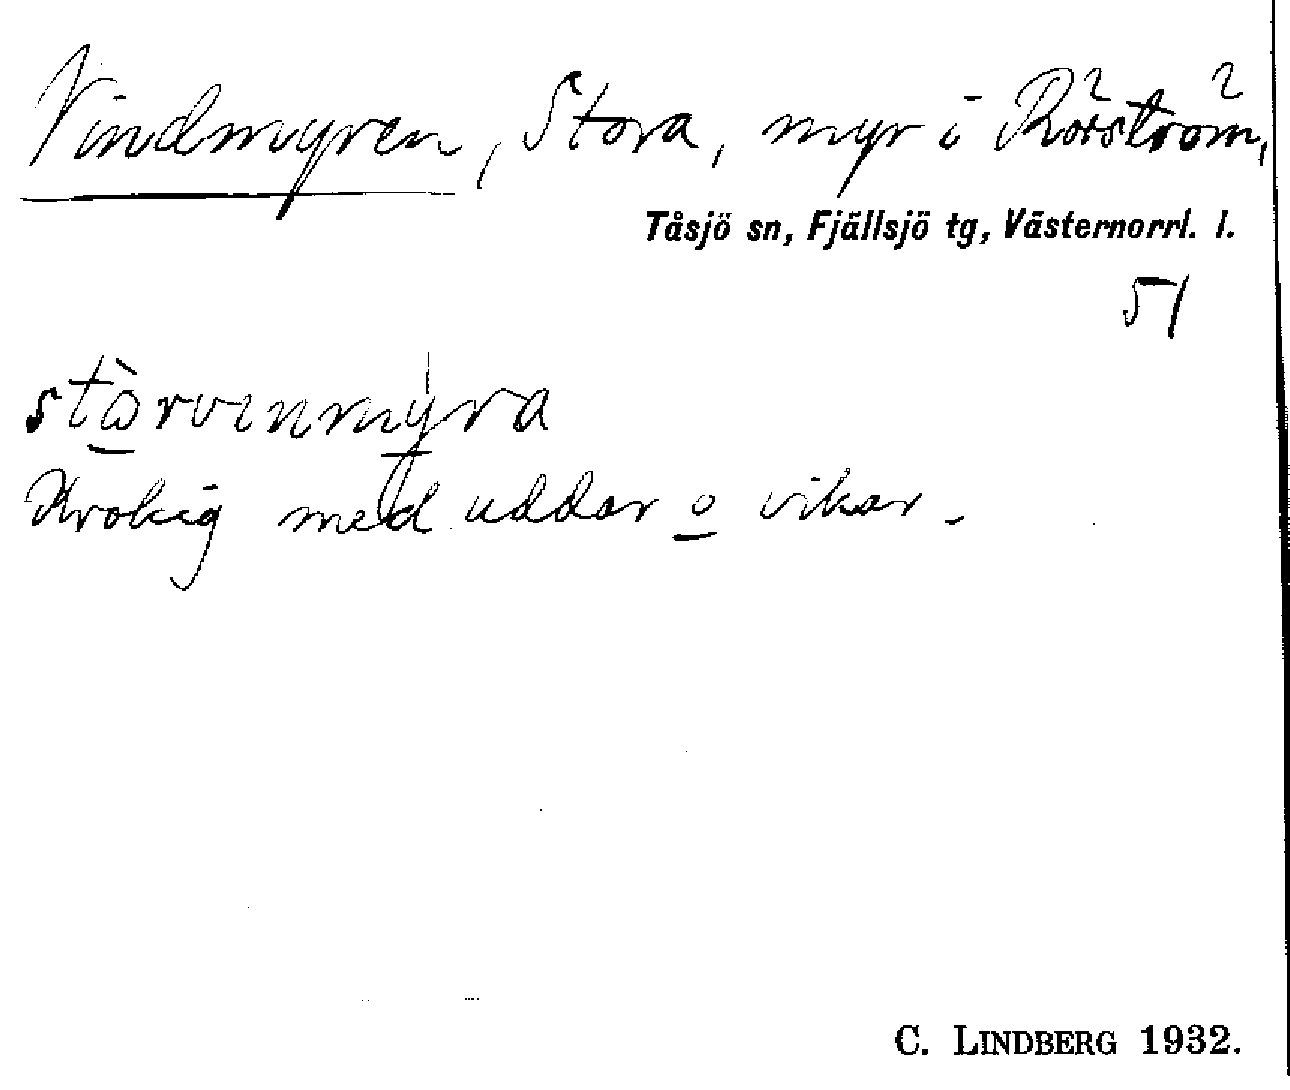 Vindmyren, Stora, myr i Rörström,
Tåsjö sn, Fjällsjö tg, Västernorrl. l.
51
stòrvinmyra
Krokig med uddar o vikar.
C. LINDBERG 1932.